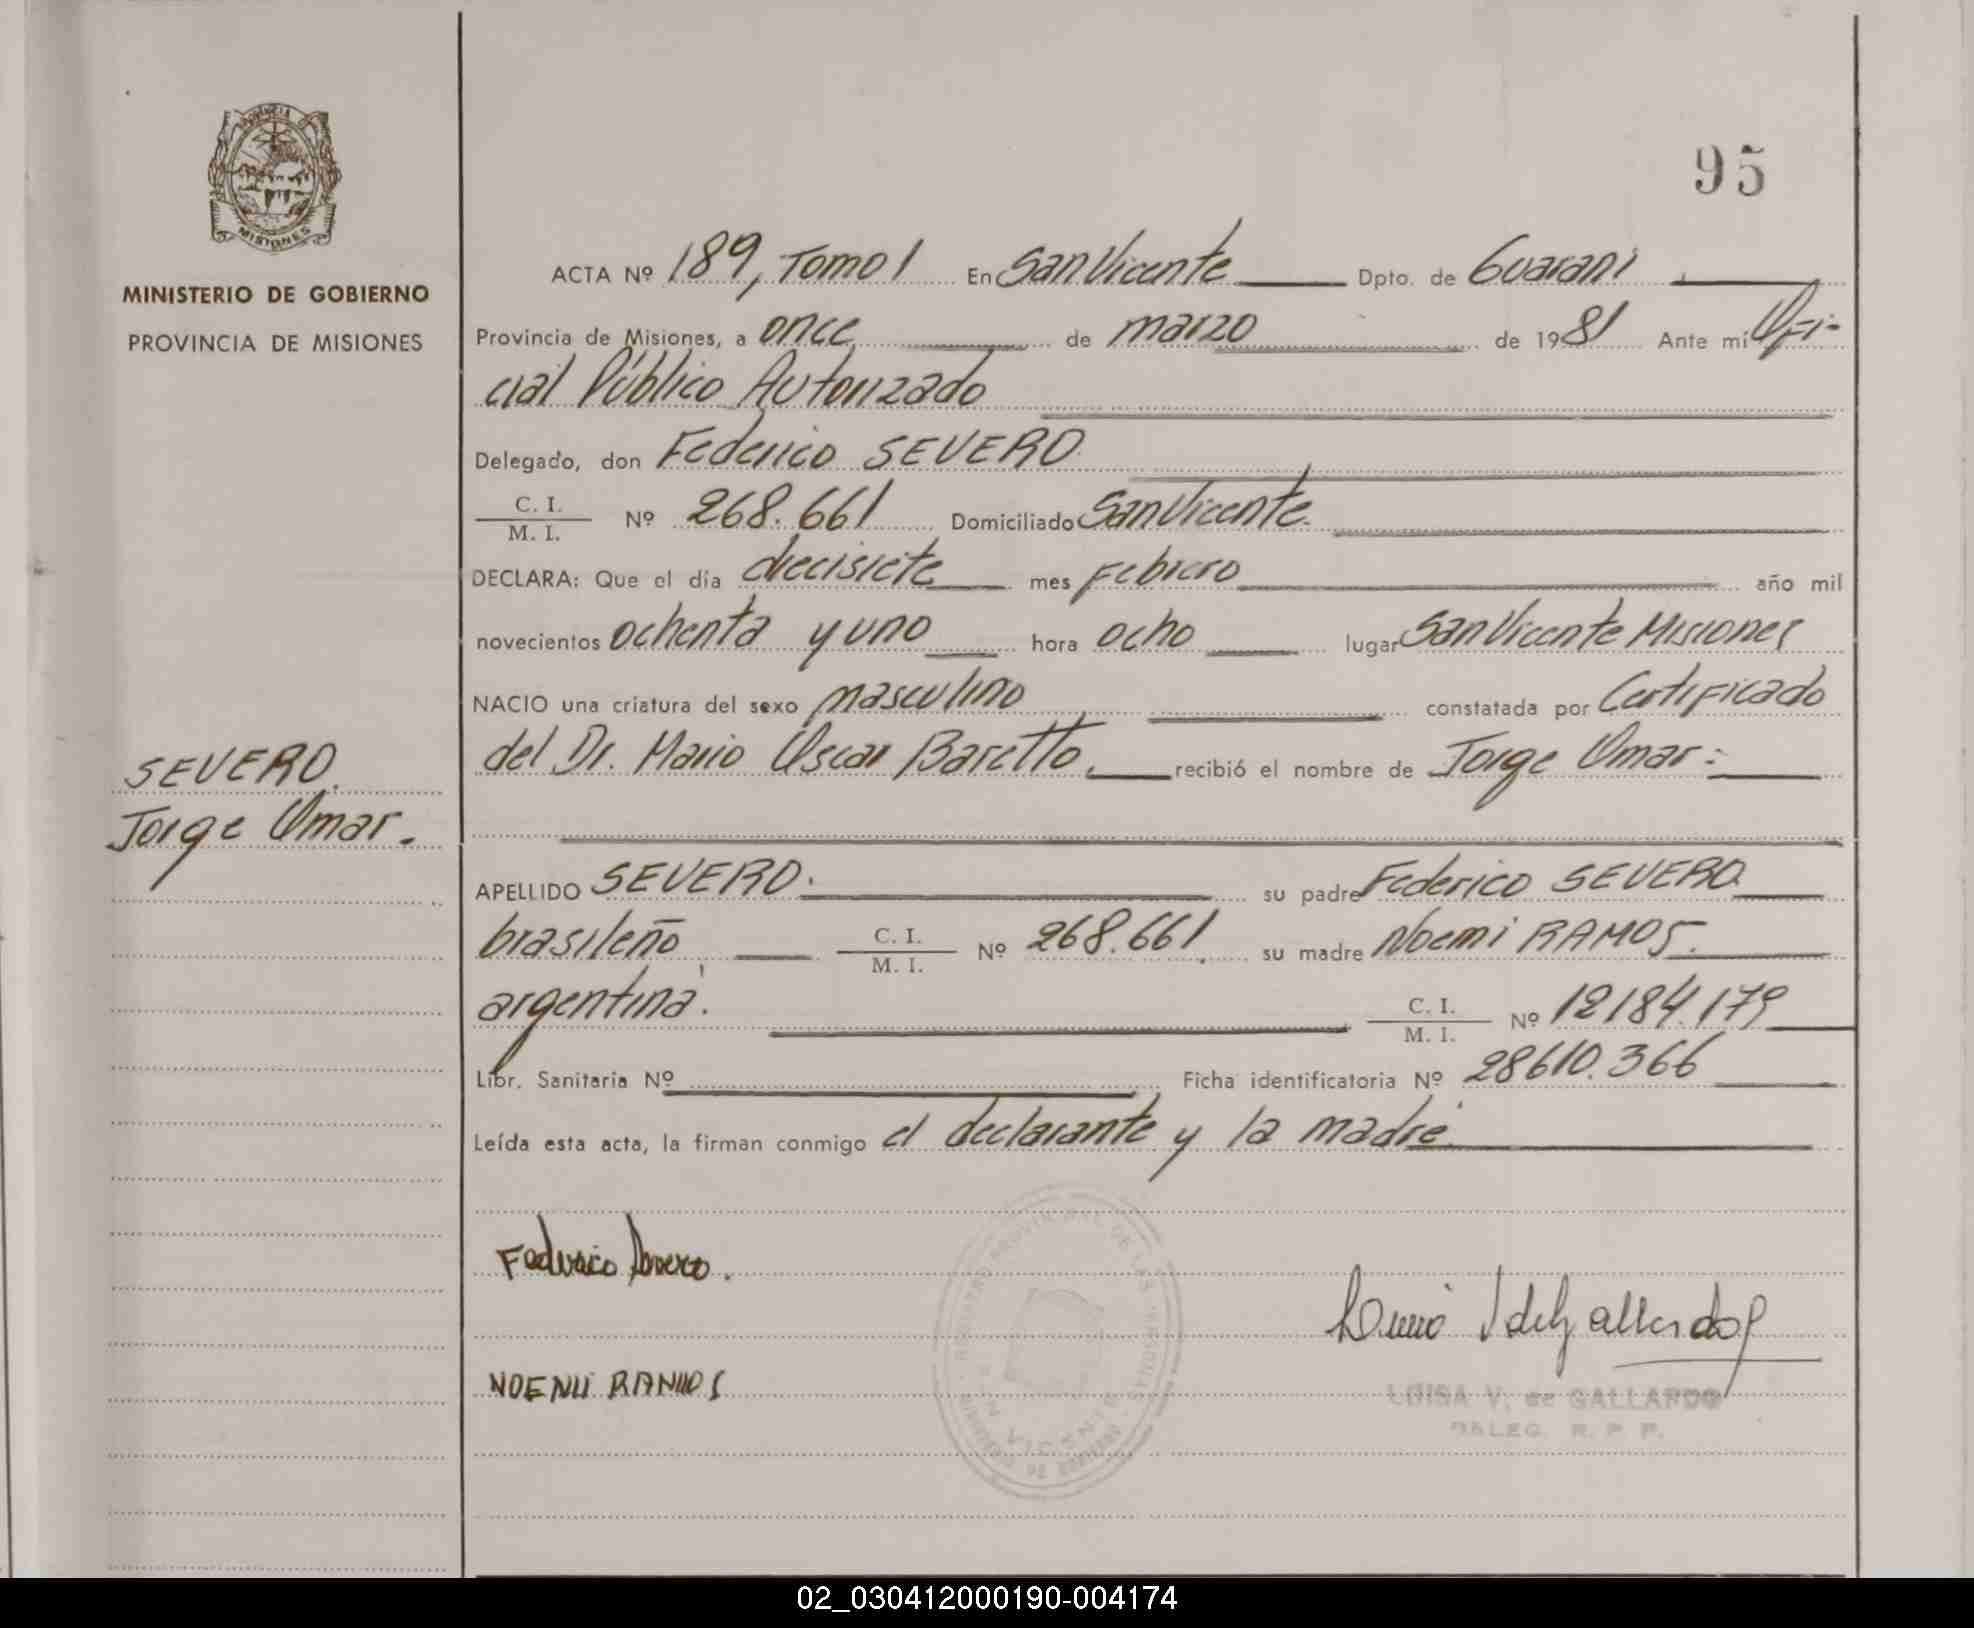 95
PROVINCIA
MISIONES
MINISTERIO DE GOBIERNO
PROVINCIA DE MISIONES
SEVERO.
Jorge Omar.
ACTA Nº 189, Tomo 1 En San Vicente Dpto. de Guaraní
Provincia de Misiones, a once de marzo de 1981 Ante mí Ofi-
cial Público Autorizado
Delegado, don Federico SEVERO.
C. I.
M. I.
Nº 268.661 Domiciliado San Vicente.
DECLARA: Que el día diecisiete mes Febrero año mil
novecientos ochenta y uno hora ocho lugar San Vicente Misiones
NACIO una criatura del sexo masculino constatada por Certificado
del Dr. Mario Oscar Baretto. recibió el nombre de Jorge Omar:
APELLIDO SEVERO. su padre Federico SEVERO
brasileño C. I. / M. I. Nº 268.661. su madre Noemi RAMOS.
argentina. C. I. / M. I. Nº 12184.179
Libr. Sanitaria Nº Ficha identificatoria Nº 28610.366
Leída esta acta, la firman conmigo el declarante y la madre.
Federico Severo.
NOEMI RAMOS
REGISTRO PROVINCIAL DE LAS PERSONAS
SAN VICENTE
LUISA V. de GALLARDO
DELEG. R. P. P.
02_030412000190-004174